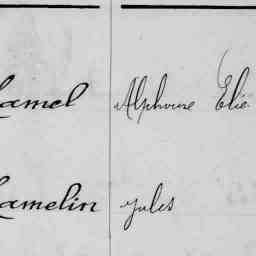 amel Alphonse Elie
amelin Jules